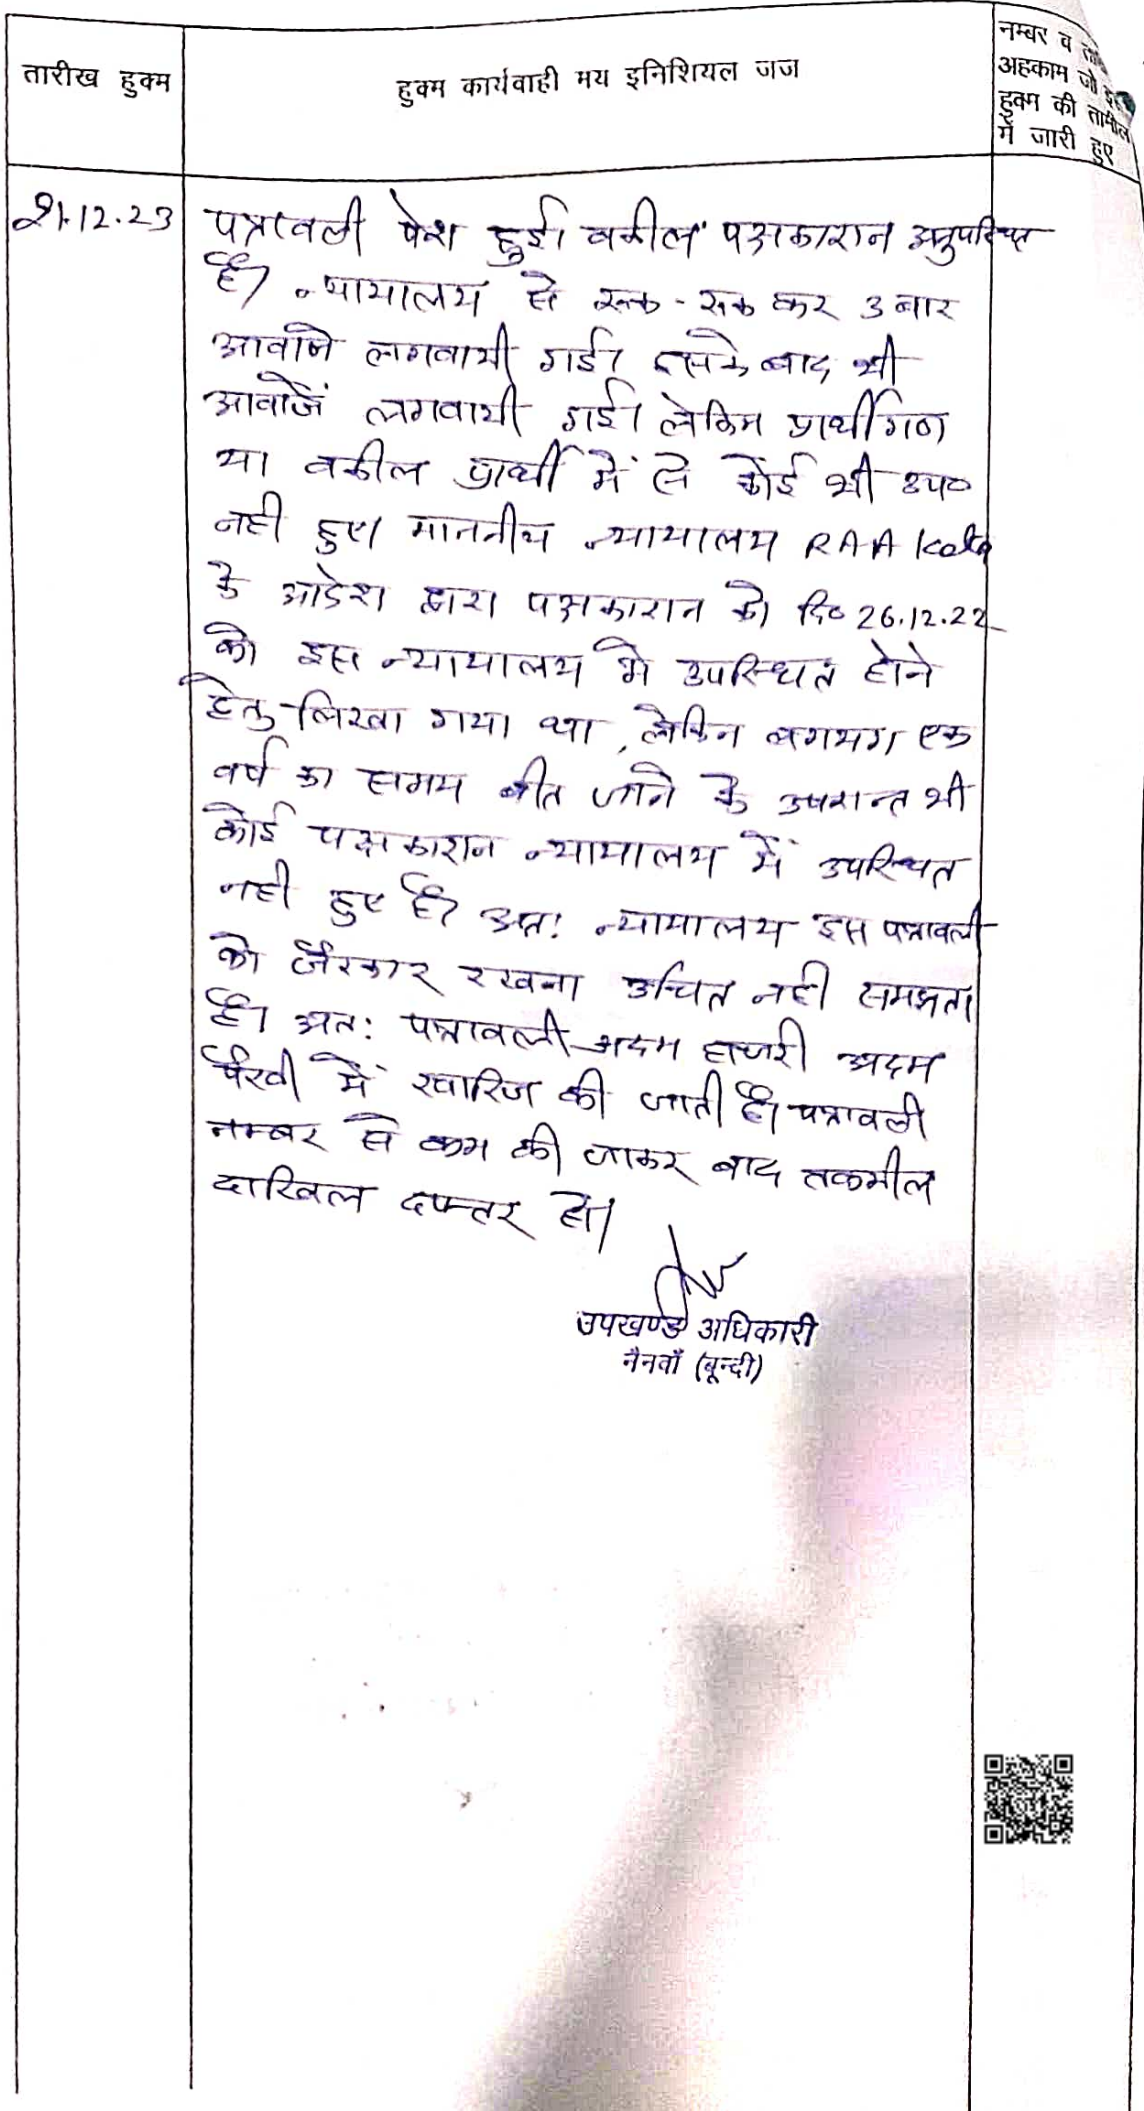 तारीख हुक्म
हुक्म कार्यवाही मय इनिशियल जज
नम्बर व
अहकाम जो इस
हुक्म की तामील
में जारी हुए
21.12.23
पत्रावली पेश हुई। वकील पक्षकारान अनुपस्थित
है। न्यायालय से रूक-रूक कर 3 बार
आवाजे लगवायी गई। इसके बाद भी
आवाजें लगवायी गई। लेकिन प्रार्थीगण
या वकील प्रार्थी में से कोई भी उप०
नही हुए। माननीय न्यायालय RAA Kota
के आदेश द्वारा पक्षकारान को दि० 26.12.22
को इस न्यायालय मे उपस्थित होने
हेतु लिखा गया था, लेकिन लगभग एक
वर्ष का समय बीत जाने के उपरान्त भी
कोई पक्षकारान न्यायालय में उपस्थित
नही हुए है। अतः न्यायालय इस पत्रावली
को रखना उचित नही समझता
है। अतः पत्रावली अदम हाजरी अदम
पैरवी में खारिज की जाती है। पत्रावली
नम्बर से कम की जाकर बाद तकमील
दाखिल दफ्तर हो।
उपखण्ड अधिकारी
नैनवाँ (बून्दी)